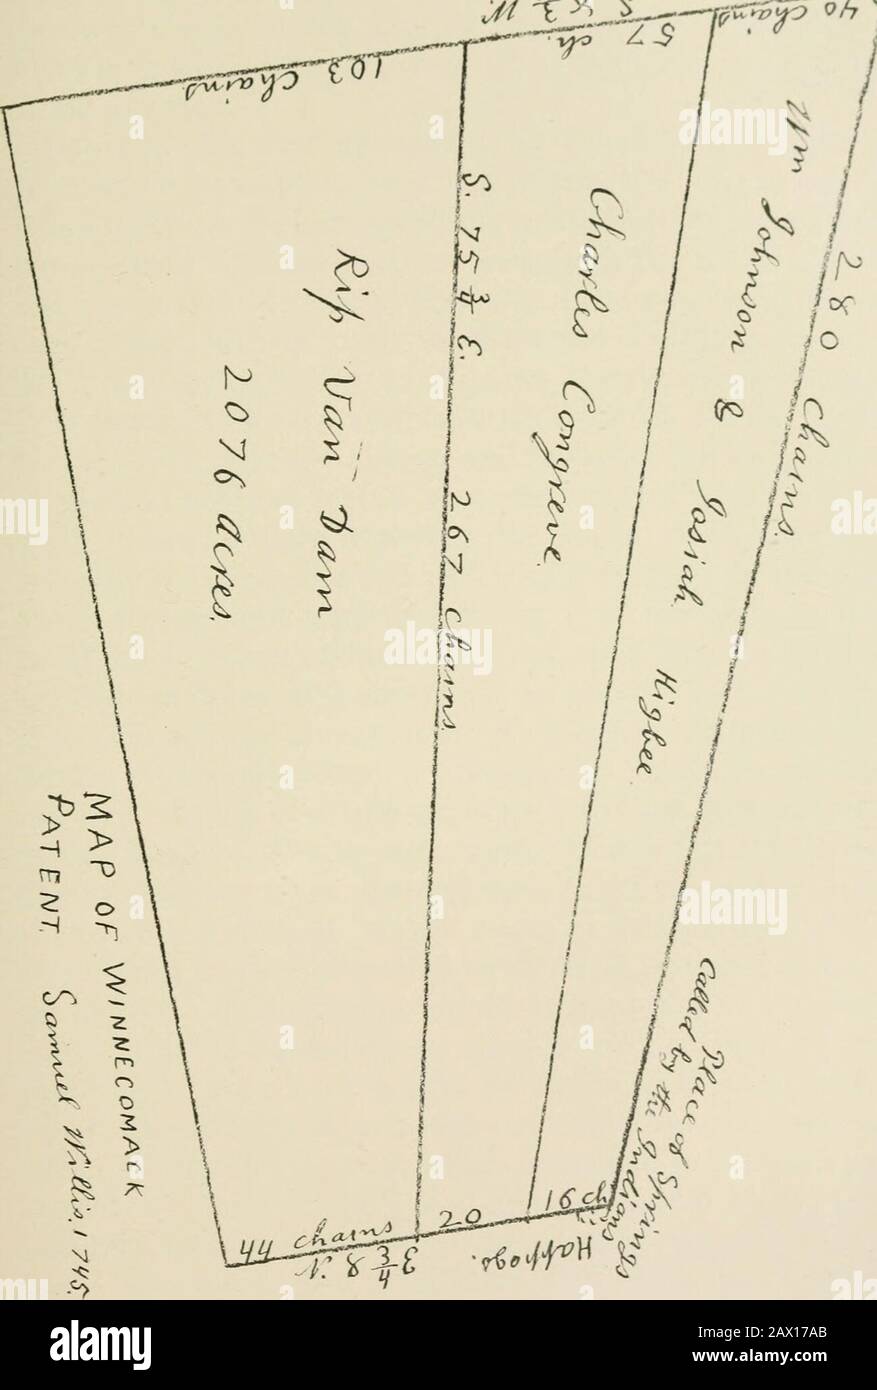 40 chains
57 ch.
103 chains
Wm Johnson & Josiah Higbee
280 chains.
Charles Congreve
S. 75 3/4 E. 267 chains.
Rip Van Dam
2076 acres.
Place of Springs
Called by the Indians
Happogs.
16 ch
20
44 chains
MAP OF WINNECOMACK
PATENT. Samuel Willis, 1745.
alamy
Image ID: 2AX17AB
www.alamy.com